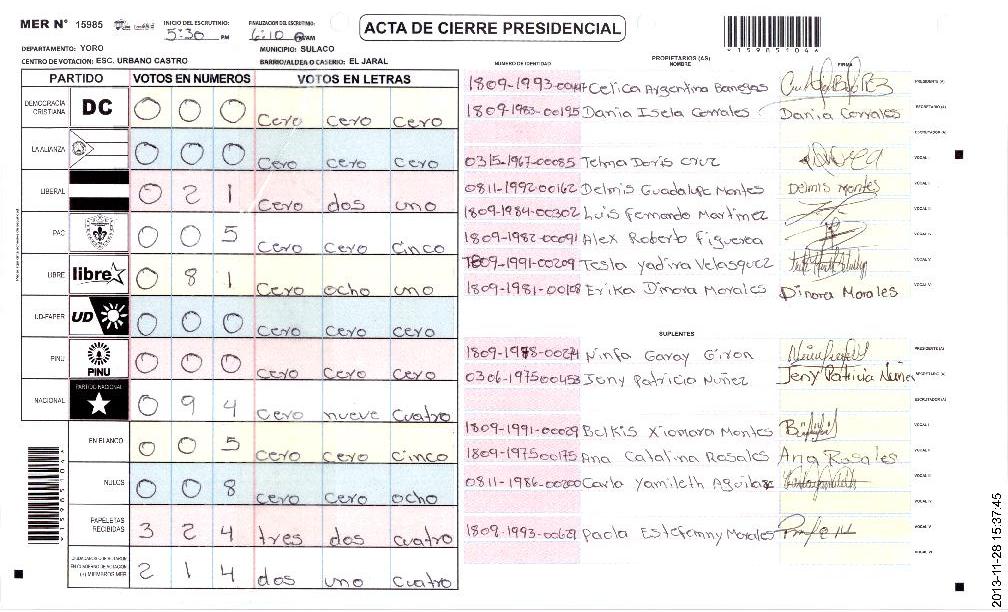 MER N° 15985
INICIO DEL ESCRUTINIO: 5:30 PM
FINALIZACIÓN DEL ESCRUTINIO: 6:10 AM
ACTA DE CIERRE PRESIDENCIAL
DEPARTAMENTO: YORO
MUNICIPIO: SULACO
CENTRO DE VOTACION: ESC. URBANO CASTRO
BARRIO/ALDEA O CASERIO: EL JARAL
PARTIDO VOTOS EN NUMEROS VOTOS EN LETRAS
DEMOCRACIA CRISTIANA DC 0 0 0 Cero Cero Cero
LA ALIANZA 0 0 0 Cero Cero Cero
LIBERAL 0 2 1 Cero dos uno
PAC 0 0 5 Cero Cero Cinco
LIBRE libre 0 8 1 Cero ocho uno
UD-FAPER UD 0 0 0 Cero Cero Cero
PINU PINU 0 0 0 Cero Cero Cero
NACIONAL PARTIDO NACIONAL 0 9 4 Cero nueve Cuatro
EN BLANCO 0 0 5 Cero Cero Cinco
NULOS 0 0 8 Cero Cero ocho
PAPELETAS RECIBIDAS 3 2 4 tres dos Cuatro
CIUDADANOS QUE VOTARON EN CUADERNO DE VOTACION (+) MIEMBROS MER 2 1 4 dos uno Cuatro
15985104
NUMERO DE IDENTIDAD PROPIETARIOS (AS) NOMBRE FIRMA
Celica Argentina Banegas PRESIDENTE (A)
1809-1983-00195 Dania Isela Corrales Dania Corrales SECRETARIO (A)
ESCRUTADOR (A)
0315-1967-00085 Telma Doris Cruz VOCAL I
0811-1992-00162 Delmis Guadalupe Montes Delmis Montes VOCAL II
1809-1984-00302 Luis Fernando Martinez VOCAL III
1809-1982-00091 Alex Roberto Figueroa VOCAL IV
1809-1991-00209 Tesla Yadira Velasquez VOCAL V
1809-1981-00108 Erika Dinora Morales Dinora Morales VOCAL VI
SUPLENTES
1809-1978-00274 Ninfa Garay Giron PRESIDENTE (A)
0306-1975-00453 Jeny Patricia Nuñez Jeny Patricia Nuñez SECRETARIO (A)
ESCRUTADOR (A)
1809-1991-00029 Belkis Xiomara Montes VOCAL I
1809-1975-00175 Ana Catalina Rosales Ana Rosales VOCAL II
0811-1986-00200 Carla Yamileth Aguilar VOCAL III
VOCAL IV
1809-1993-00621 Paola Estefanny Morales VOCAL V
VOCAL VI
15985104
2013-11-28 15:37:45